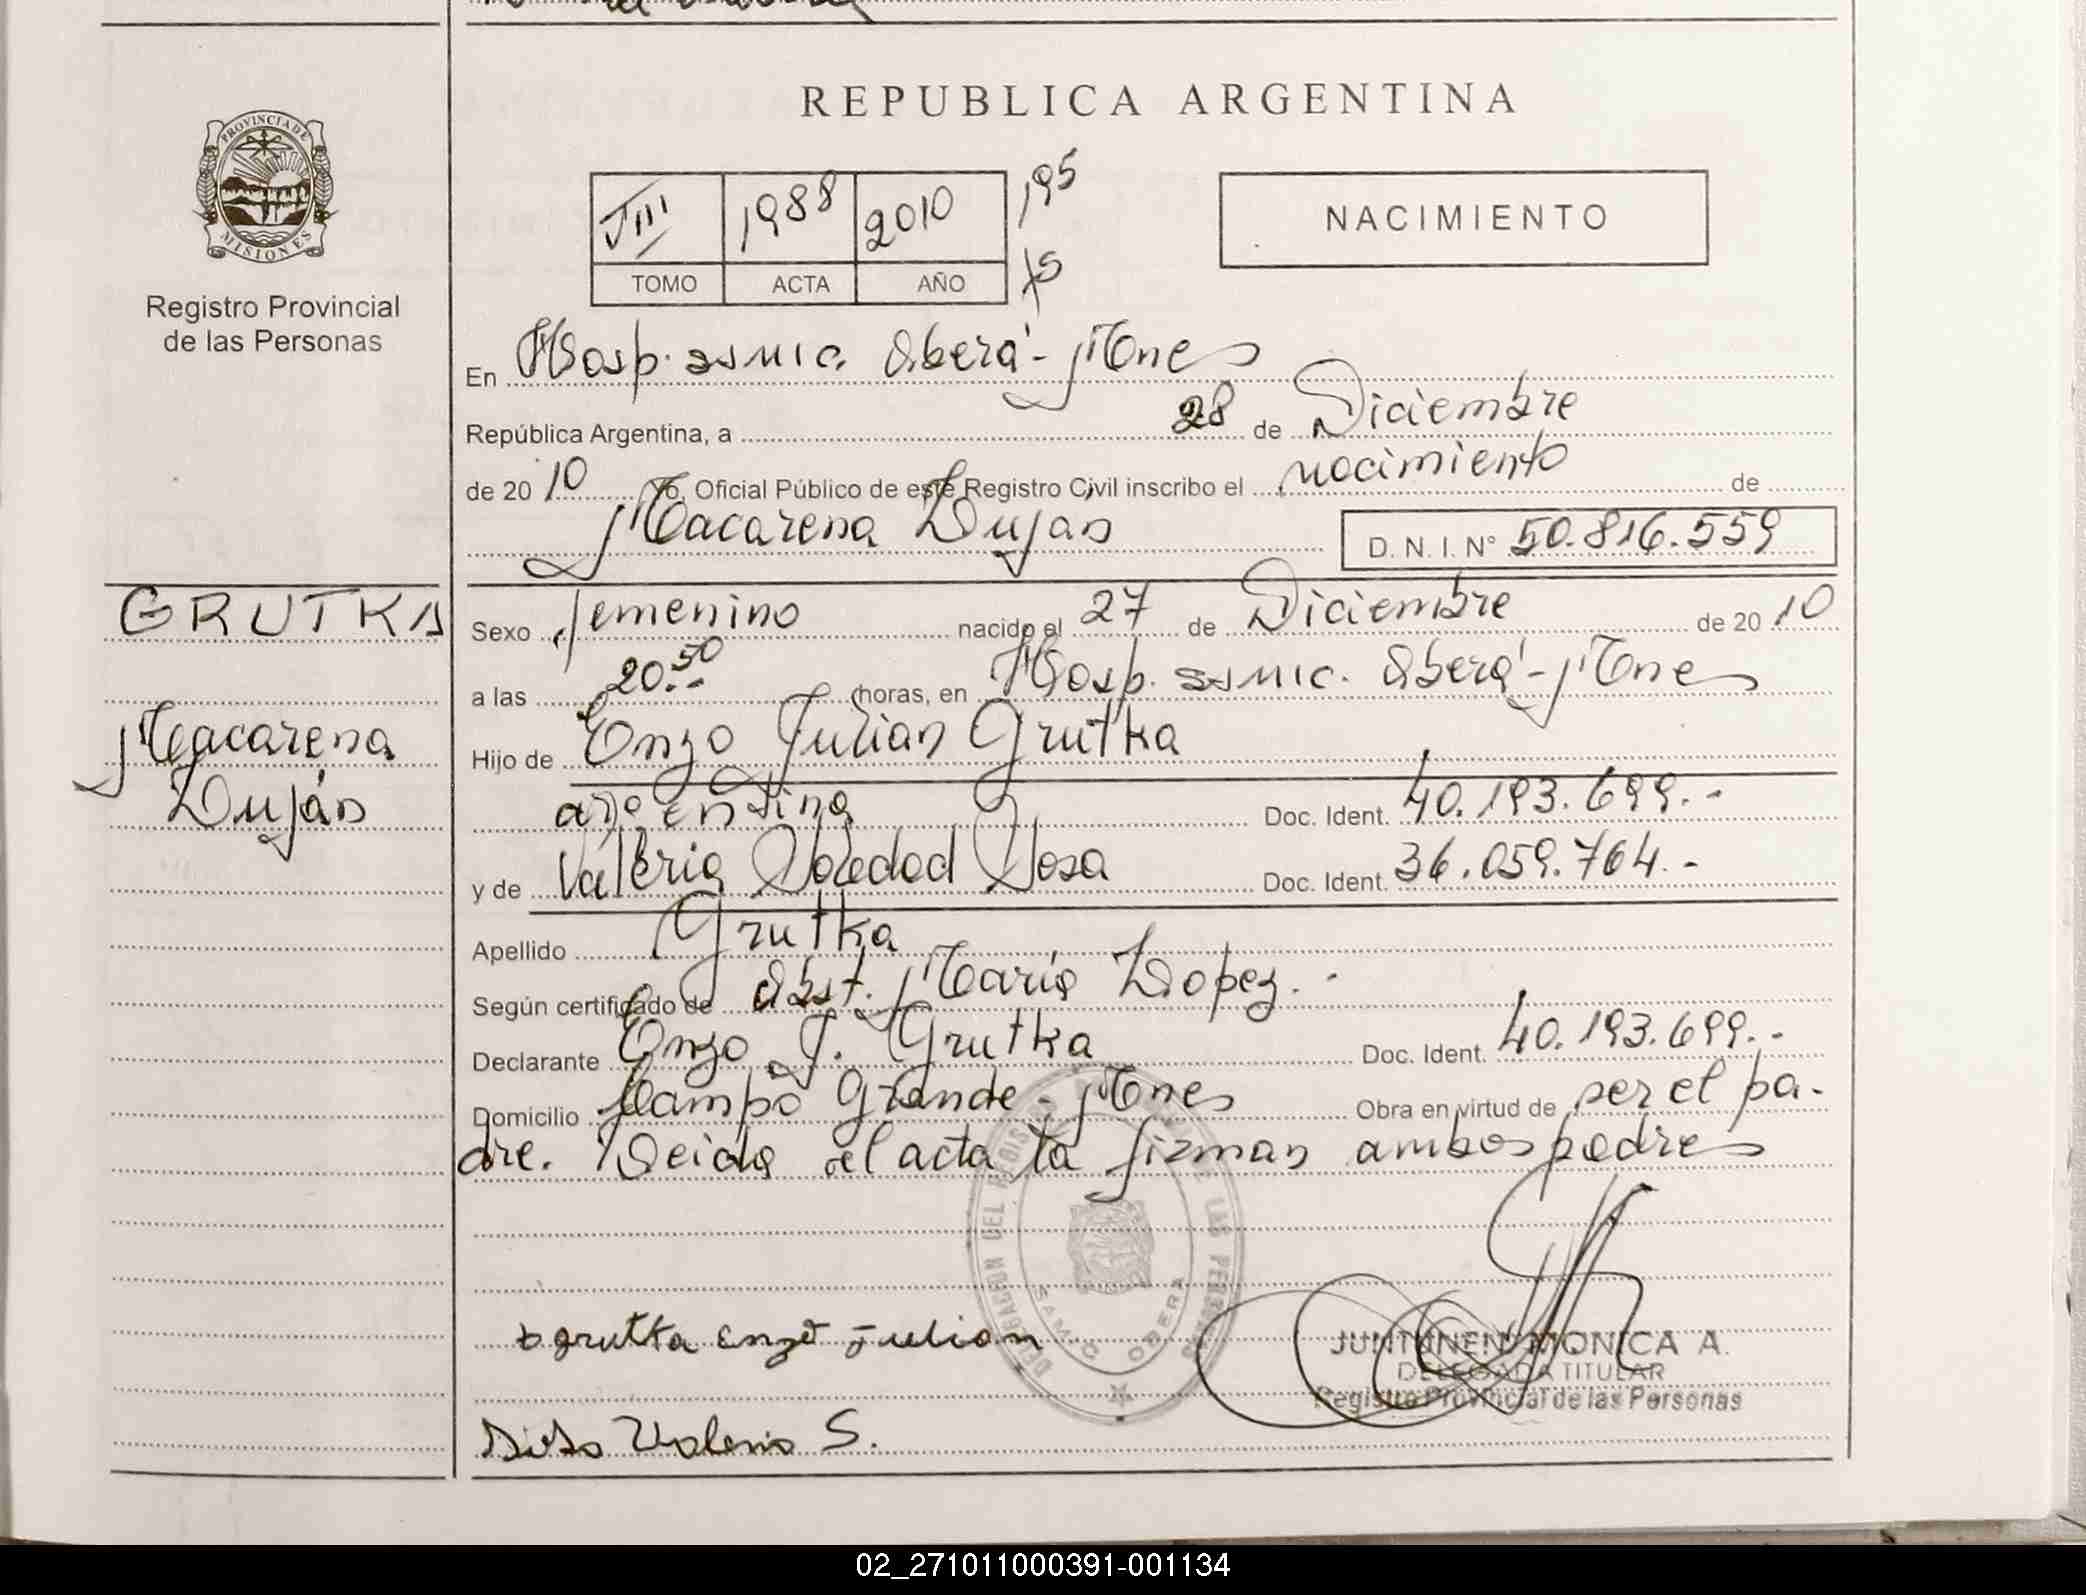 REPUBLICA ARGENTINA
PROVINCIA DE
MISIONES
Registro Provincial
de las Personas
VIII 1988 2010 195
TOMO ACTA AÑO
NACIMIENTO
En Hosp. SAMIC. Oberá - Mnes
República Argentina, a 28 de Diciembre
de 20 10 Yo, Oficial Público de este Registro Civil inscribo el nacimiento de
Macarena Lujan D. N. I. N° 50.816.559
GRUTKA
Macarena
Luján
Sexo femenino nacido el 27 de Diciembre de 20 10
a las 20.50 horas, en Hosp. SAMIC. Oberá - Mnes
Hijo de Enzo Julian Grutka
argentina Doc. Ident. 40.193.699.-
y de Valeria Soledad Sosa Doc. Ident. 36.059.764.-
Apellido Grutka
Según certificado de Obst. María Lopez.-
Declarante Enzo J. Grutka Doc. Ident. 40.193.699.-
Domicilio Campo Grande - Mnes Obra en virtud de ser el pa-
dre. Leida el acta la firman ambos padres
DELEGACION DEL REGISTRO DE LAS PERSONAS
SAMIC OBERA
grutka enzo julian
JUNTUNEN MONICA A.
DELEGADA TITULAR
Registro Provincial de las Personas
Valeria S.
02_271011000391-001134